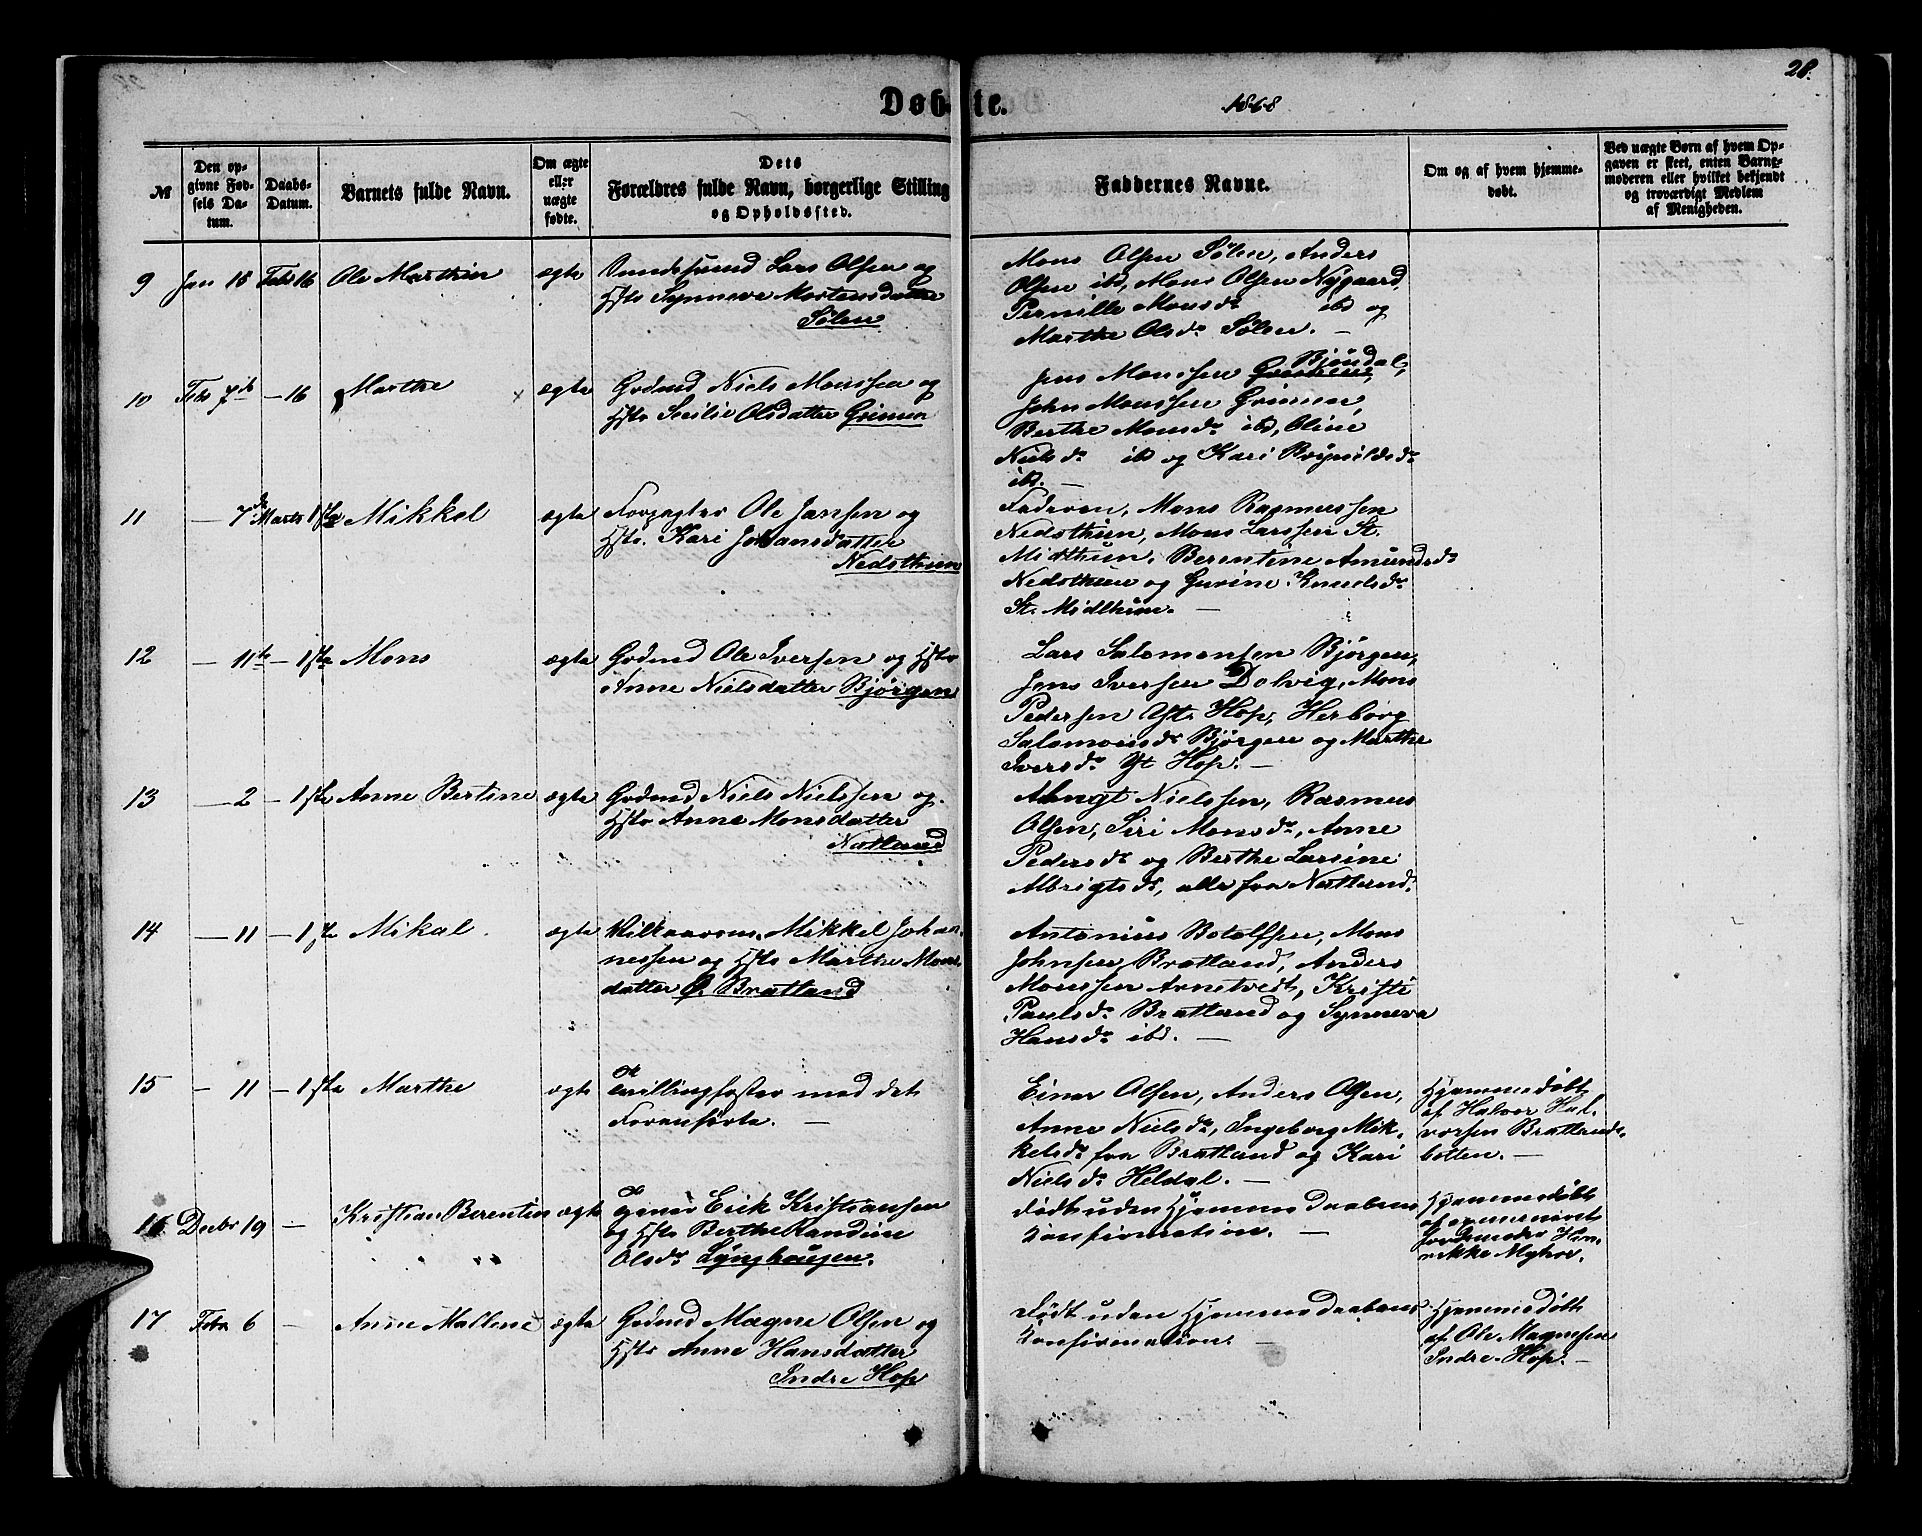 28.
Døbte.
1868
№
Den op-
givne Fød-
sels Da-
tum.
Daabs-
Datum.
Barnets fulde Navn.
Om ægte
eller
uægte
fødte.
Dets
Forældres fulde Navn, borgerlige Stilling
og Opholdssted.
Faddernes Navne.
Om og af hvem hjemme-
døbt.
Ved uægte Børn af hvem Op-
gaven er skeet, enten Barne-
moderen eller hvilket bekjendt
og troværdigt Medlem
af Menigheden.
9 Jan 15 Feb 16 Ole Marthin ægte Lars Olsen og
Hst Synneve Mortensdatter
Sølen
Mons Olsen Sølen, Anders
Olsen ibd, Mons Olsen Nygaard,
Pernille Monsdr ibd og
Marthe Olsdr Sølen. —
10 Feb 7de — 16 Marthe ægte Grdmd Niels Monssen og
Hst Secilie Olsdatter Grimen
Jens Monssen Bjøndal,
John Monssen Grimen,
Berthe Monsdr ibd, Oline
Nielsdr ibd og Kari Brynildsdr
ibd. —
11 — 7de Marts 1ste Mikkel ægte Forpagter Ole Jansen og
Hst. Kari Johansdatter
Nedsthun
Faderen, Mons Rasmussen
Nedsthun, Mons Larssen St.
Midthun, Berentine Amundsdr
Nedsthun og Gurine Knudsdr
St. Midthun. —
12 — 11te — 1ste Mons ægte Grdmd Ole Iversen og Hst
Anne Nielsdatter Bjørgen
Lars Salomonsen Bjørgen,
Jens Iversen Dolvig, Mons
Pedersen Yt. Hop, Herborg
Salomonsdr Bjørgen og Marthe
Iversdr Yt Hop. —
13 — 2 — 1ste Anne Bertine ægte Grdmd Niels Nielssen og
Hst Anne Monsdatter
Natland
Nielssen, Rasmus
Olsen, Siri Monsdr, Anne
Pedersdr og Berthe Larsine
Albrigtsdr, alle fra Natland.
14 — 11 — 1ste Mikal ægte Vilkaarsm. Mikkel Johan-
nessen og Hst Marthe Mons-
datter Ø. Bratland
Antonius Botolfsen, Mons
Johnsen Bratland, Anders
Monssen Arnetvedt, Kristi
Paulsdr Bratland og Synneva
Hansdr ibd. —
15 — 11 — 1ste Marthe ægte Tvillingsøster med det
Foranførte. —
Einar Olsen, Anders Olsen,
Anne Nielsdr, Ingeborg Mik-
kelsdr fra Bratland og Kari
Nielsdr Heldal. —
Hjemmedøbt
af Halvor Hal-
vorsen Bratlands-
botten. —
16 Decbr 19 — Kristian Berentin ægte Erik Kristiansen
og Hst Berthe Randine
Olsdr Lynghaugen.
Dødt uden Hjemmedaabens
Konfirmation. —
Hjemmedøbt
af
Hen-
rikke Myhre.
17 Febr 6 — Anne Mallene ægte Grdmd Magne Olsen og
Hst Anne Hansdatter
Indre Hop
Dødt uden Hjemmedaabens
Konfirmation. —
Hjemmedøbt
af Ole Magnesen
Indre Hop. —